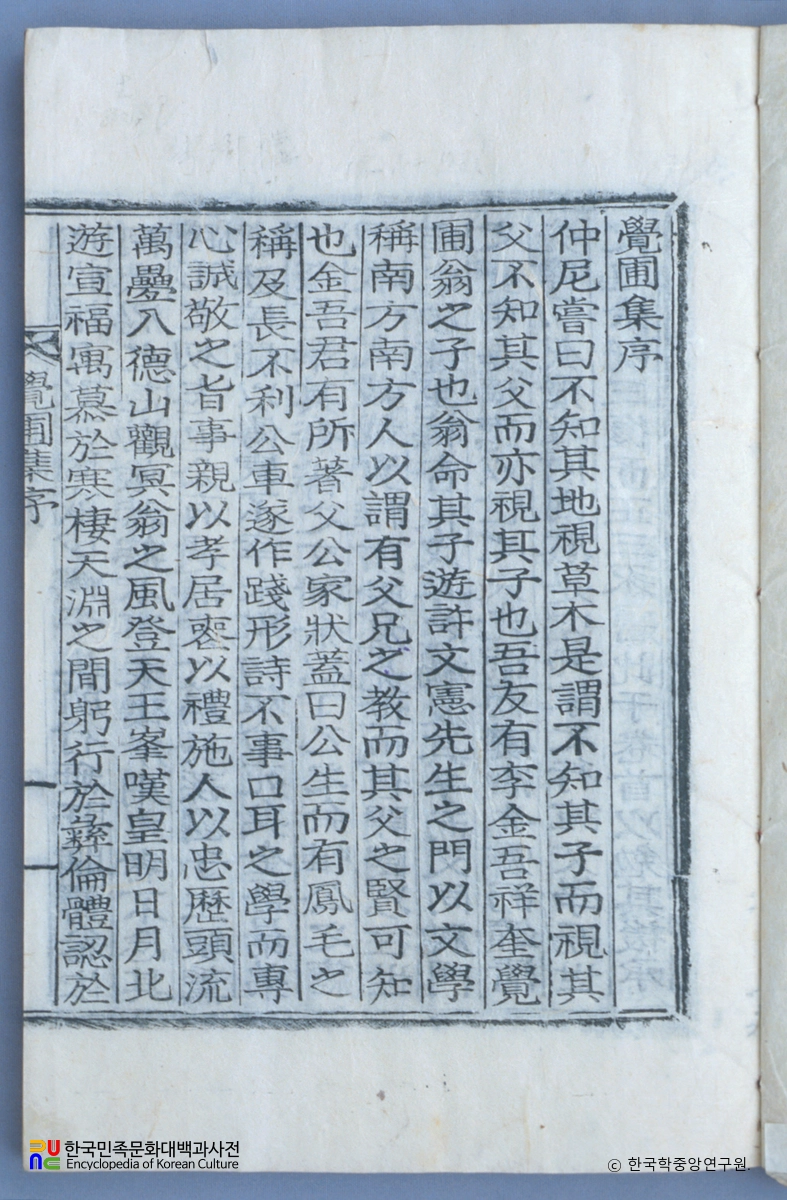 覺圃集序
仲尼嘗曰不知其地視草木是謂不知其子而視其
父不知其父而亦視其子也吾友有李金吾祥奎覺
圃翁之子也翁命其子遊許文憲先生之門以文學
稱南方南方人以謂有父兄之教而其父之賢可知
也金吾君有所著父公家狀蓋曰公生而有鳳毛之
稱及長不利公車遂作踐形詩不事口耳之學而專
心誠敬之旨事親以孝居喪以禮施人以忠歷頭流
萬疊入德山觀冥翁之風登天王峯嘆皇明日月北
遊宣福寓慕於寒棲天淵之間躬行於彝倫體認於
覺圃集序
한국민족문화대백과사전
Encyclopedia of Korean Culture
© 한국학중앙연구원.